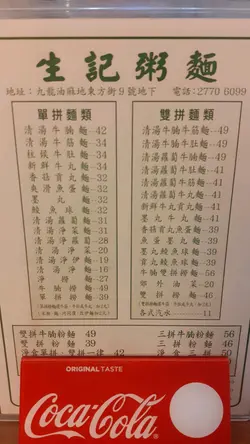 生記粥麵
地址：九龍油麻地東方街9號地下 電話：2770 6099
單拼麵類
清湯牛腩麵 — 42
清湯牛筋麵 — 34
柱候牛肚麵 — 34
新鮮牛丸麵 — 31
香菇貢丸麵 — 31
爽滑魚蛋麵 — 31
墨丸麵 — 32
鯪魚球麵 — 31
清湯淨菜麵 — 31
清湯蘿蔔麵 — 31
清湯淨菜 — 20
清湯淨蘿蔔 — 28
清湯淨伊麵 — 19
清湯淨麵 — 16
淨樽麵 — 27
牛腩樽麵 — 49
單拼樽麵 — 39
雙拼麵類
清湯牛腩牛筋麵 — 49
清湯牛腩牛肚麵 — 49
清湯蘿蔔牛腩麵 — 49
清湯蘿蔔牛肚麵 — 41
清湯蘿蔔牛筋麵 — 41
新鮮牛丸貢丸麵 — 39
墨丸牛丸麵 — 41
香菇貢丸魚蛋麵 — 39
魚蛋墨丸麵 — 41
墨丸鯪魚球麵 — 41
貢丸鯪魚球麵 — 39
牛腩雙拼樽麵 — 56
郊外油菜 — 20
雙拼樽麵 — 46
各式汽水 — 11
雙拼牛腩粉麵 49
雙拼粉麵 39
淨食單拼、雙拼一律 42
三拼牛腩粉麵 56
三拼粉麵 46
淨食三拼 50
ORIGINAL TASTE
Coca-Cola